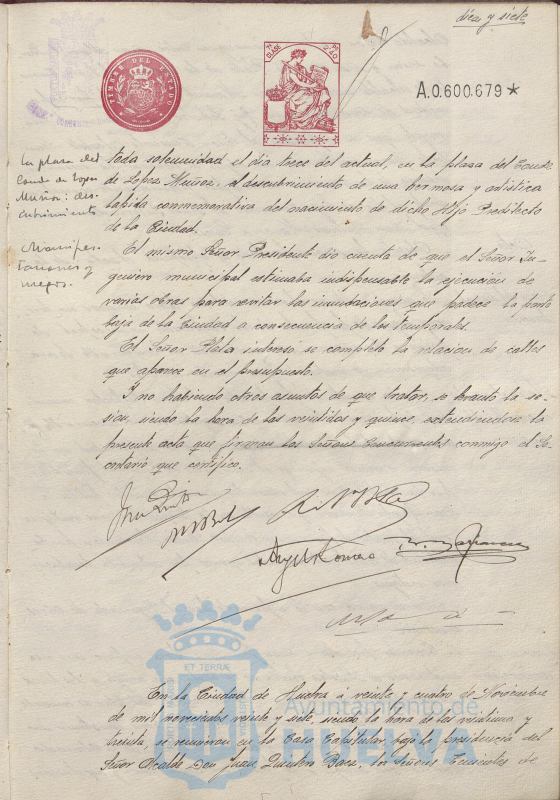 diez y siete
TIMBRE DEL ESTADO
CLASE
A.0.600.679*
la plaza del
Conde de Lopez
Muñoz: des-
cubrimiento
Manifes-
taciones y
ruegos.
toda solemnidad el dia trece del actual, en la plaza del Conde
de Lopez Muñoz, el descubrimiento de una hermosa y artistica
lapida conmemorativa del nacimiento de dicho Hijo Predilecto
de la Ciudad.
El mismo Señor Presidente dio cuenta de que el Señor In-
geniero municipal estimaba indispensable la ejecucion de
varias obras para evitar las inundaciones que padece la parte
baja de la Ciudad a consecuencia de los temporales.
El Señor Plata intereso se complete la relacion de calles
que aparece en el presupuesto.
Y no habiendo otros asuntos de que tratar, se levantó la se-
sion, siendo la hora de las veintidos y quince, extendiendose la
presente acta que firman los Señores Concurrentes conmigo el Se-
cretario que certifico.
Angel Romero
ET TERRÆ
En la Ciudad de Huelva á veinte y cuatro de Noviembre
de mil novecientos veinte y siete, siendo la hora de las veintiuna y
treinta, se reunieron en la Casa Capitular, bajo la presidencia del
Señor Alcalde Don Juan Quintero Baez, los Señores Tenientes de
Ayuntamiento de
HUELVA